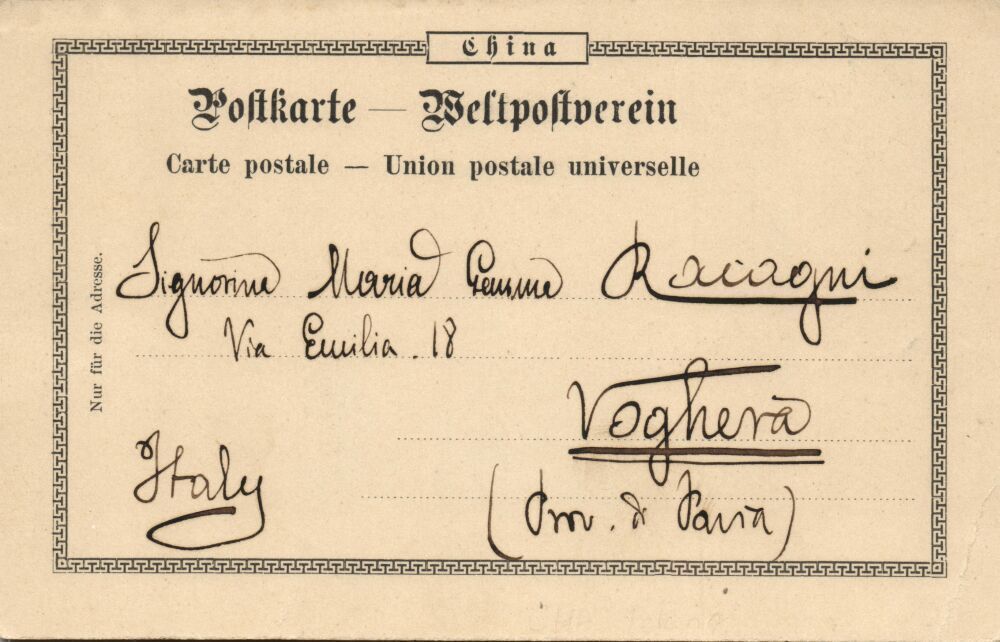 China
Postkarte — Weltpostverein
Carte postale — Union postale universelle
Nur für die Adresse.
Signorina Maria Gemma Racagni
Via Emilia . 18
Voghera
Italy
(Prov. di Pavia)